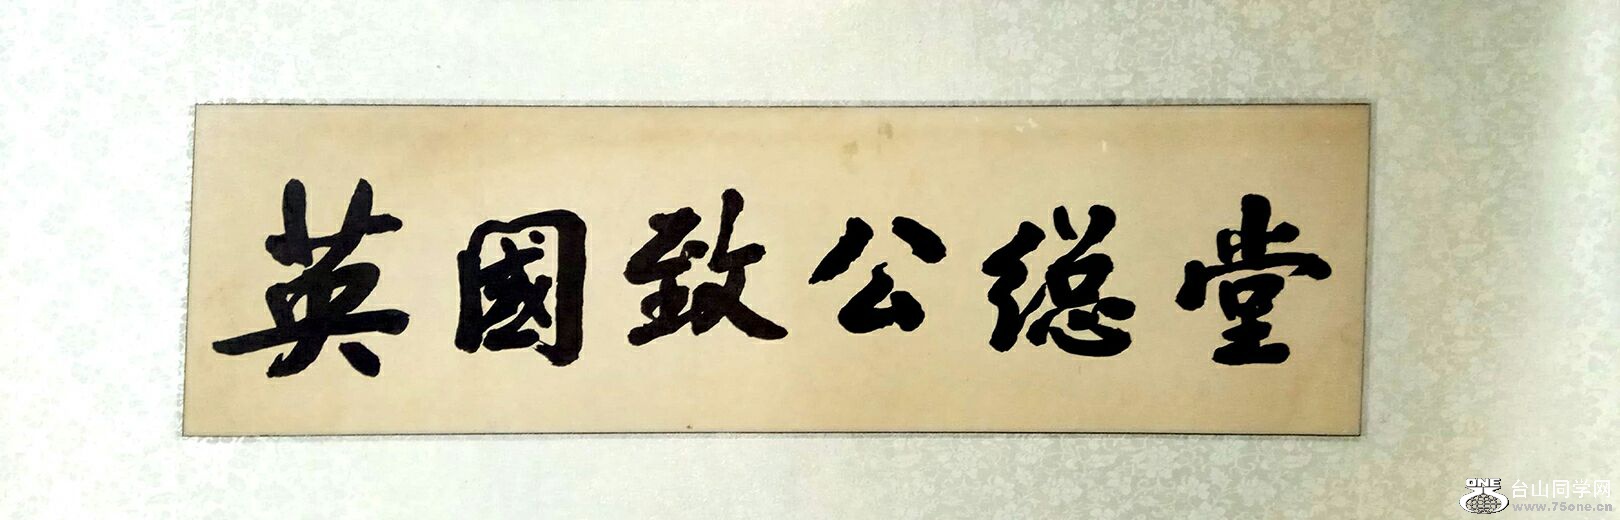 英國致公総堂
ONE 台山同学网
www.75one.cn